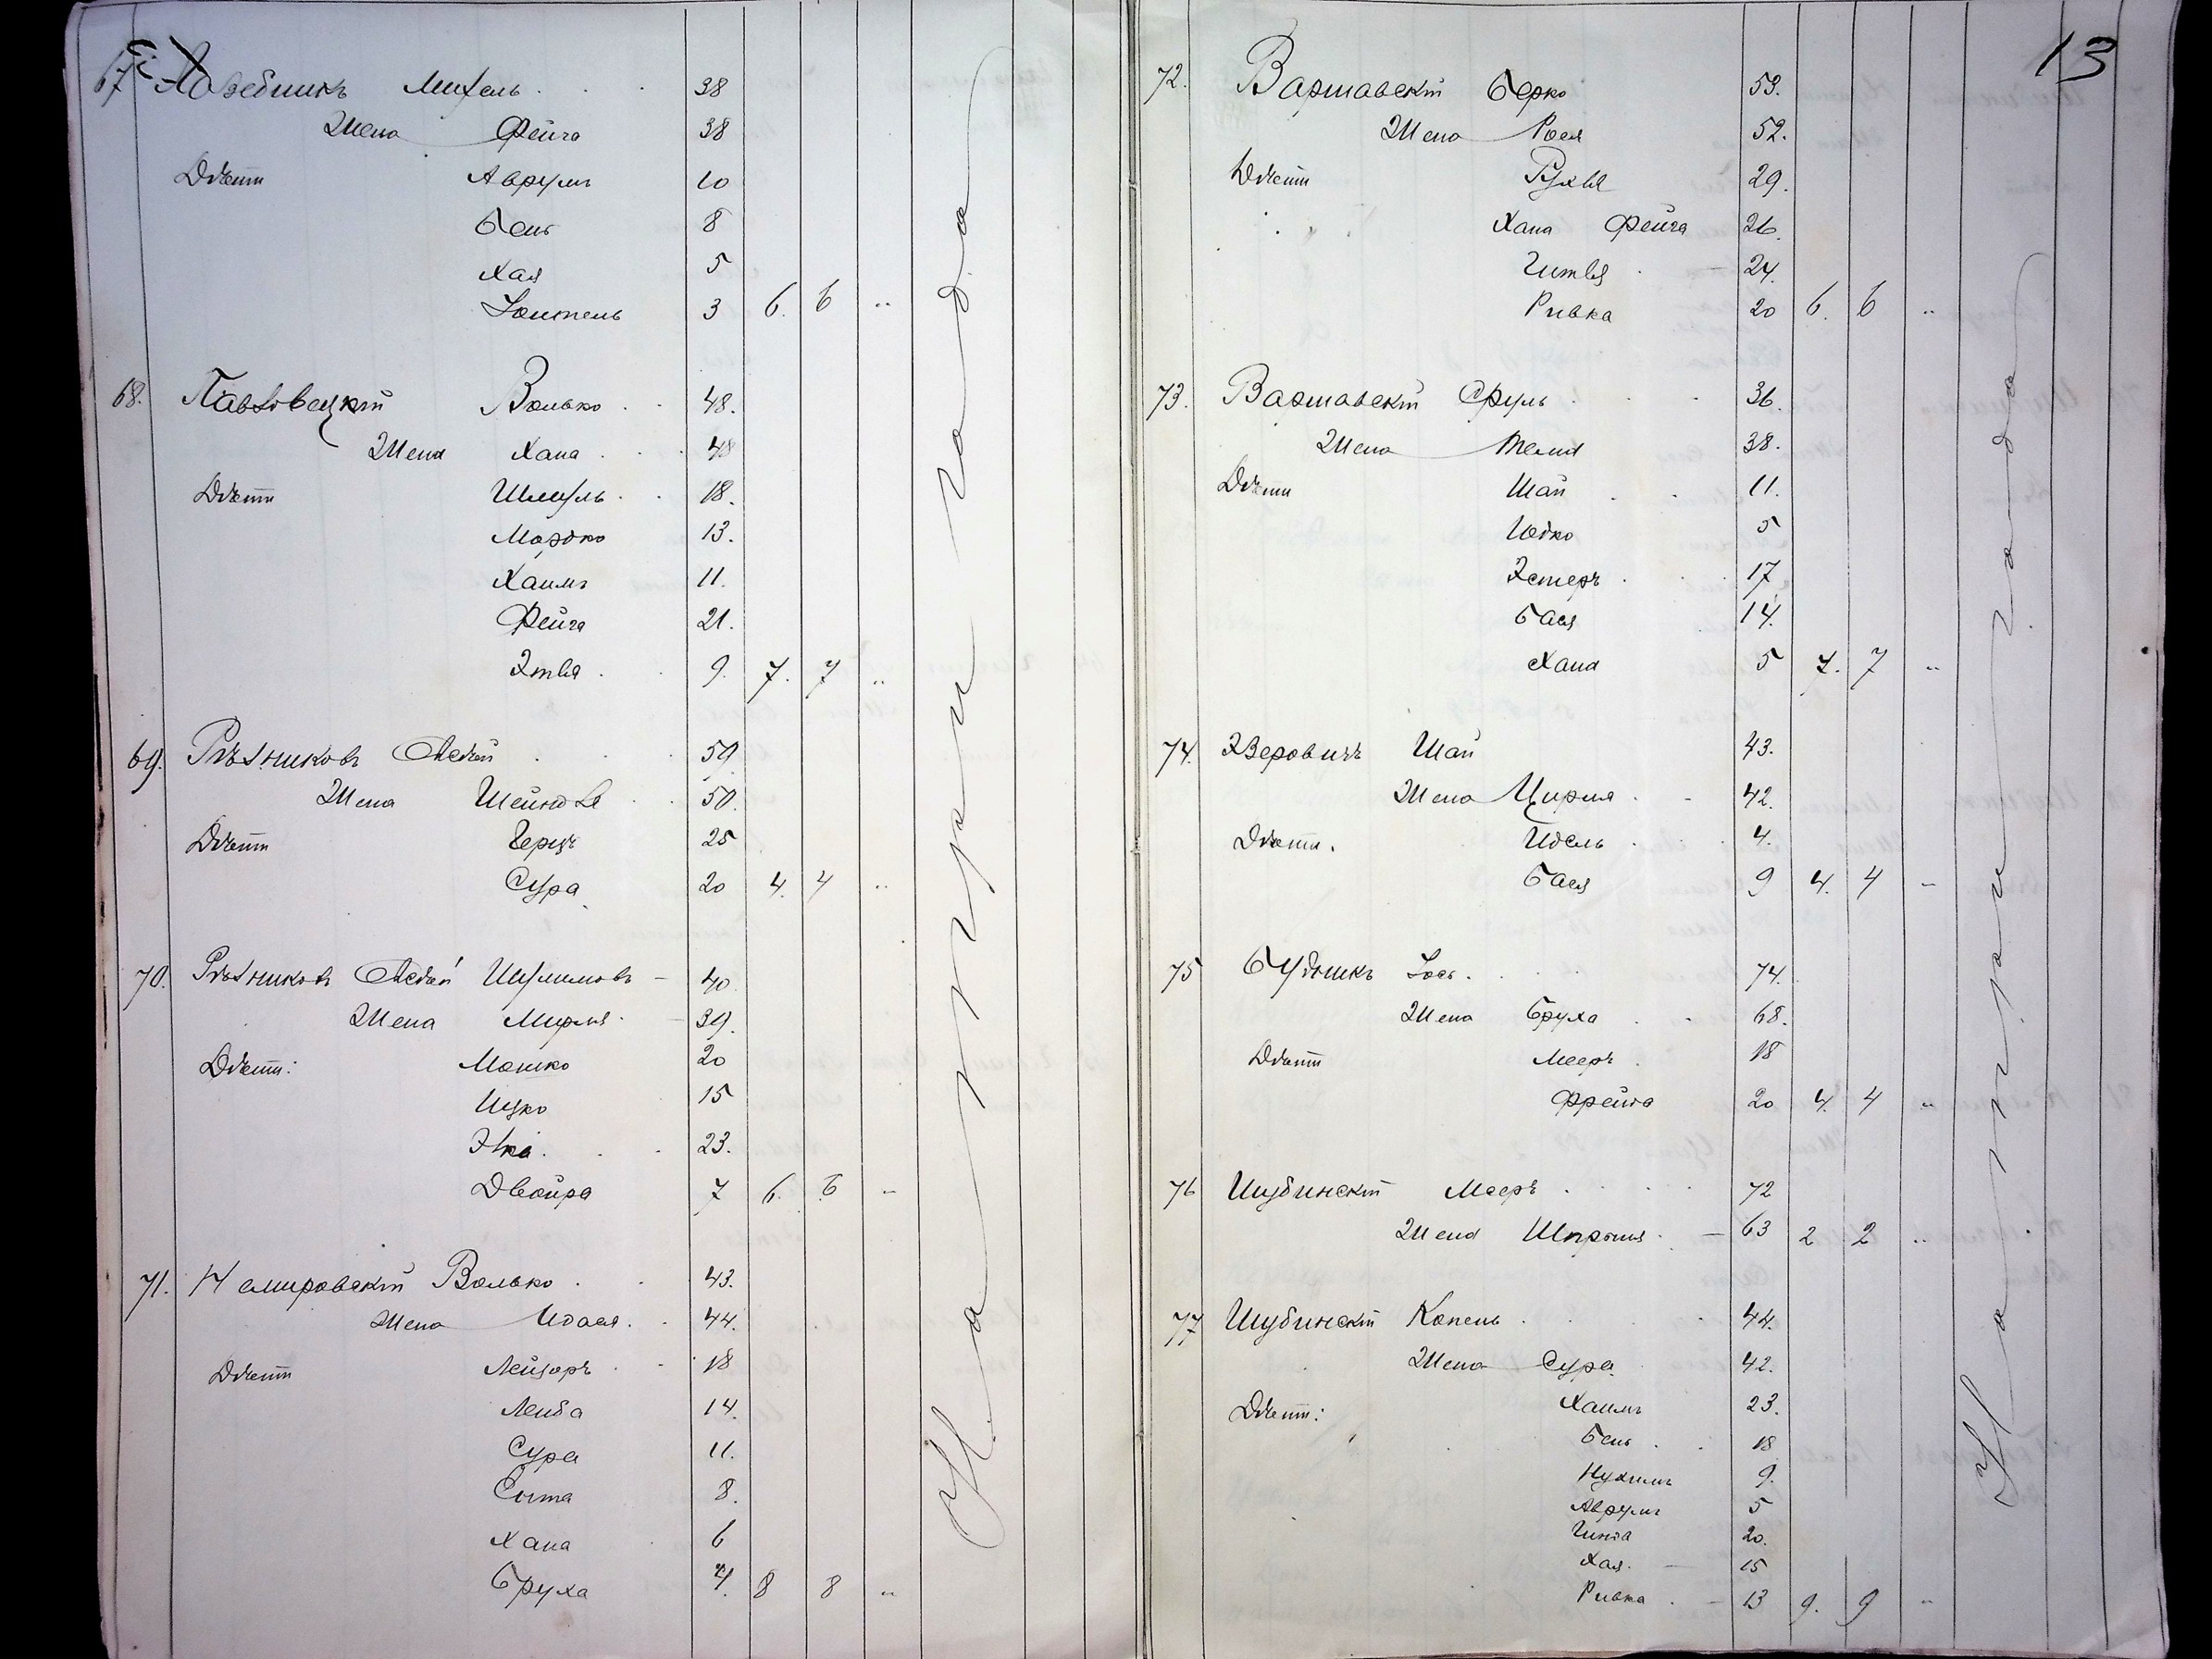 67 Михель 38
Жена Фейга 38
Дѣти Аврумъ 10
Бень 8
Хая 5
3 6. 6 "
68. Павловецкій Волько 48.
Жена Хана 48
Дѣти Шмуль 18.
Мордко 13.
Хаимъ 11.
Фейга 21.
Этля 9. 7. 7 "
69. Рѣзниковъ Авдѣй 59
Жена Шейндля 50.
Дѣти Герцъ 25
Сура 20 4. 4 "
70. Рѣзниковъ Авдѣй Шулимовъ 40
Жена Мирля 39.
Дѣти: Мошко 20
Ицко 15
Эня 23.
Двойра 7 6. 6 "
71. Немировскій Волько 43.
Жена Идася 44.
Дѣти Лейзоръ 18
Лейба 14.
Сура 11.
Сима 8.
Хана 6
Бруха 4. 8 8 "
13
72. Варшавскій Берко 53.
Жена Рося 52.
Дѣти Рухля 29.
Хана Фейга 26.
Гитля 24.
Ривка 20 6. 6 "
73. Варшавскій Сруль 36.
Жена 38.
Дѣти Шая 11.
Юдко 5
Эстеръ 17
Бася 14.
Хана 5 7. 7 "
74. Зверовичъ Шая 43.
Жена Цирля 42.
Дѣти. Идель 4.
Бася 9 4. 4 "
75 Будникъ Іось 74.
Жена Бруха 68.
Дѣти Мееръ 18
Фрейда 20 4. 4 "
76 Шубинскій Мееръ 72
Жена Шприня 63 2 2 "
77 Шубинскій Копель 44.
Жена Сура 42.
Дѣти: Хаимъ 23.
Бень 18
Нухимъ 9.
Аврумъ 5
Гинда 20.
Хая 15
Ривка 13 9. 9 "